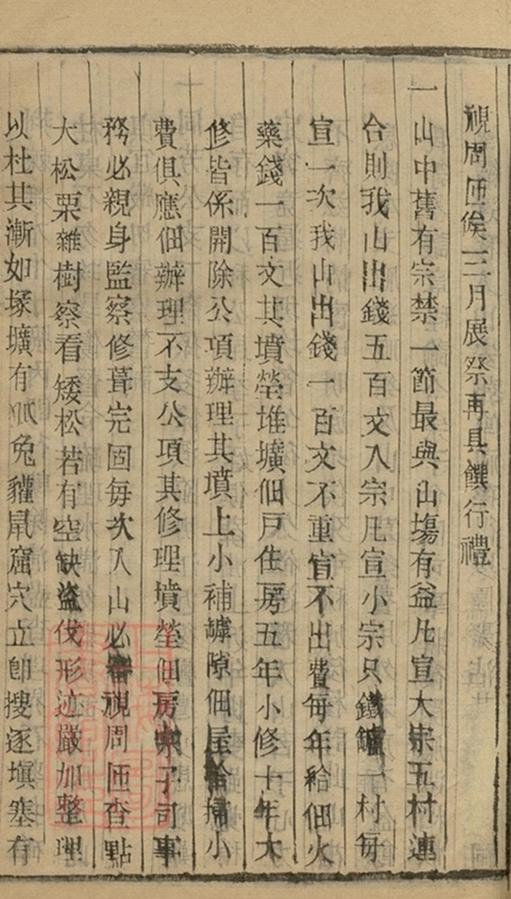 視周匝俟三月展祭再具饌行禮
一山中舊有宗禁一節最與山塲有益凡宣大宗五村連
合則我山出錢五百文入宗凡宣小宗只鐵爐一村每
宣一次我山出錢一百文不重宣不出費每年給佃火
藥錢一百文其墳塋堆壙佃戶住房五年小修十年大
修皆係開除公項辦理其墳上小補罅隙佃屋 掃小
費俱應佃辦理不支公項其修理墳塋佃房 子司事
務必親身監察修葺完固每次入山必審視周匝查點
大松栗雜樹察看矮松若有空缺盜伐形迹嚴加整理
以杜其漸如塚壙有狐兔貛鼠窟穴立卽搜逐塡塞有